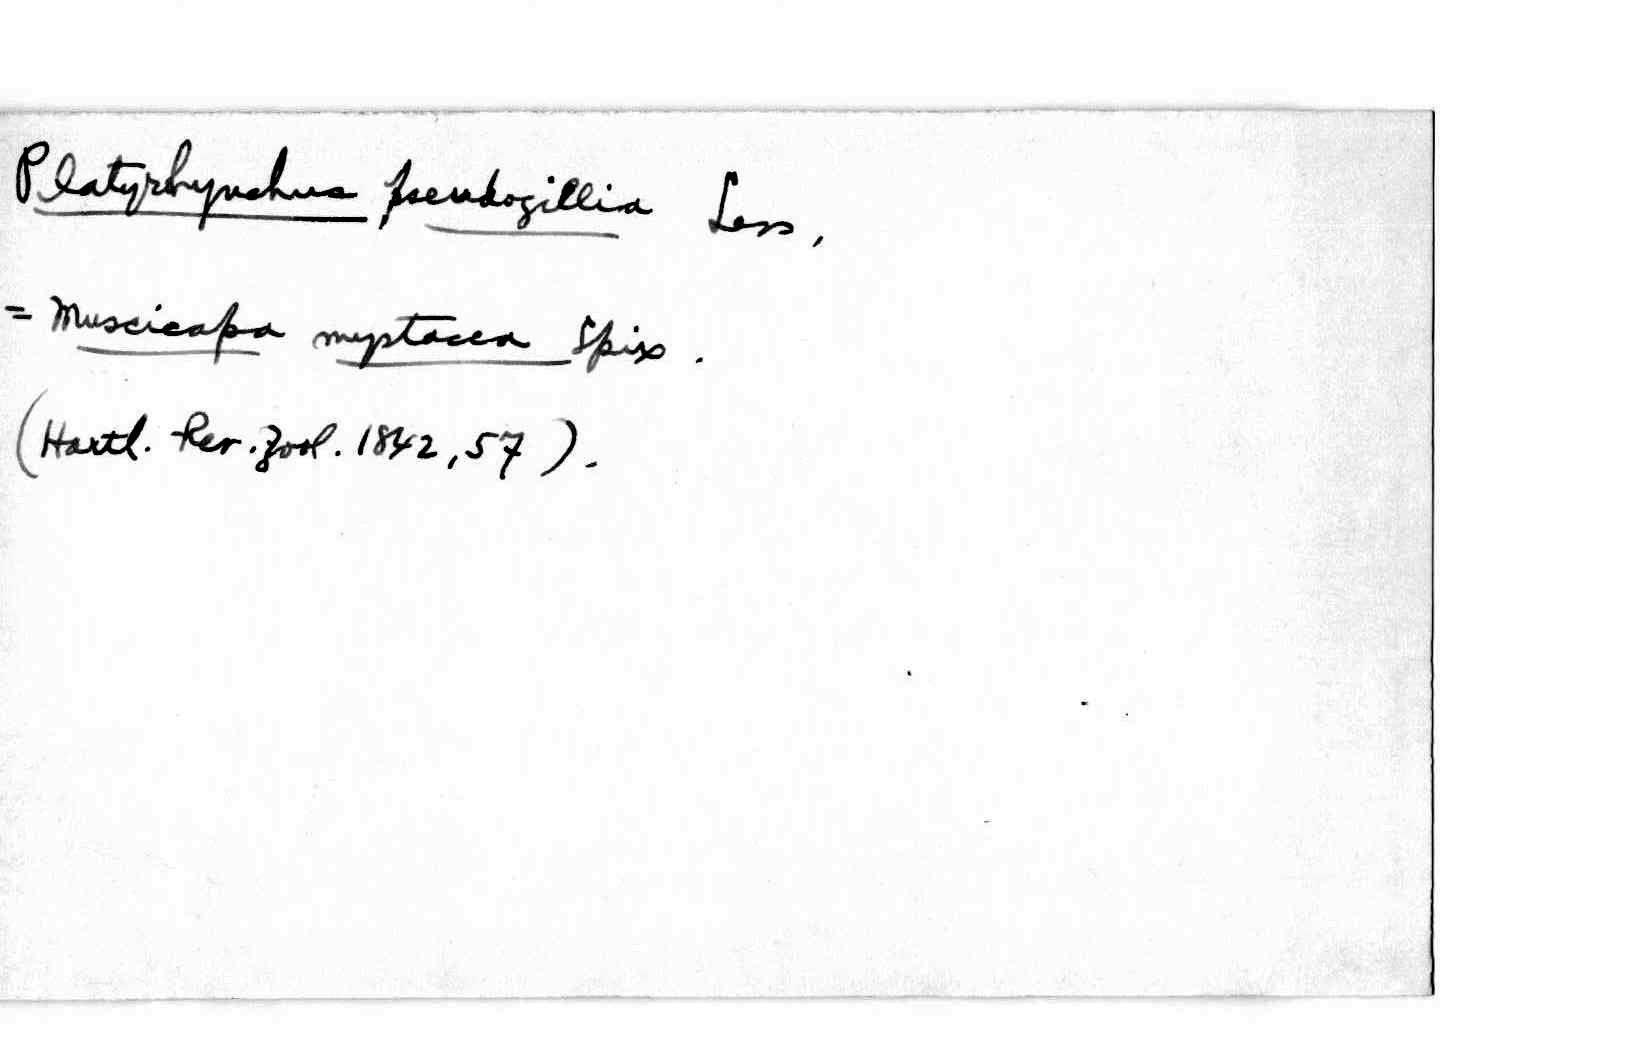 Platyrhynchus pseudogillia Less,
= Muscicapa myptacea Spix.
(Hartl. Rev. Zool. 1842, 57).